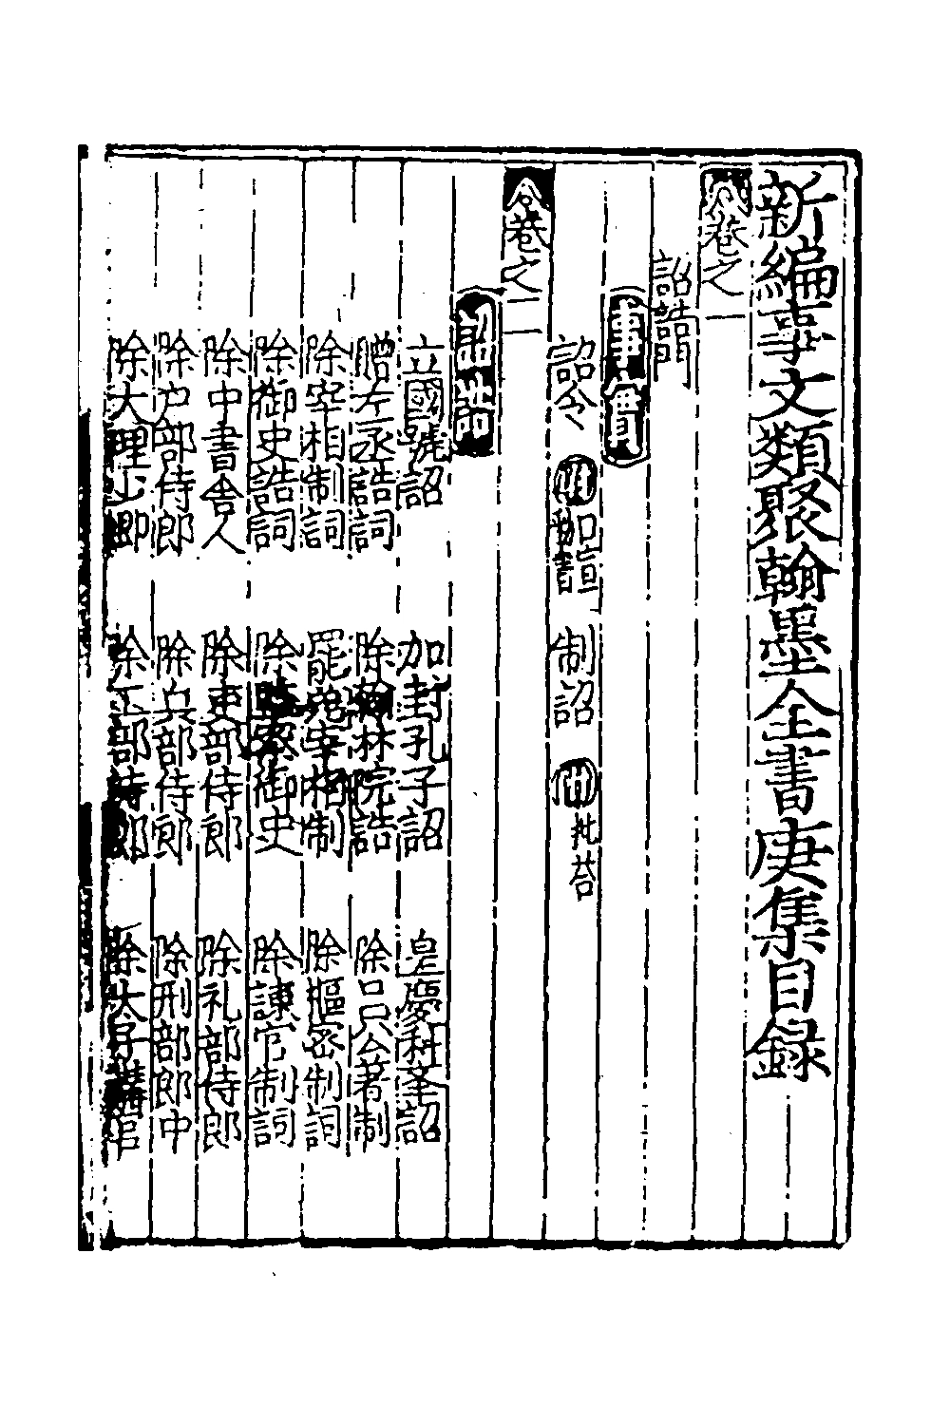 新編事文類聚翰墨全書庚集目録
卷之一
詔誥門
事實
詔令 明 如宣勅書 制詔 批荅
卷之二
詔誥
立國號詔 加封孔子詔 皇慶科筆詔
贈左丞誥詞 除翰林院誥 除呂公著制
除宰相制詞 罷宰相制 除樞密制詞
除御史誥詞 除監察御史 除諫官制詞
除中書舎人 除吏部侍郎 除礼部侍郎
除户部侍郎 除兵部侍郎 除刑部郎中
除大理少卿 除工部侍郎 除太子官